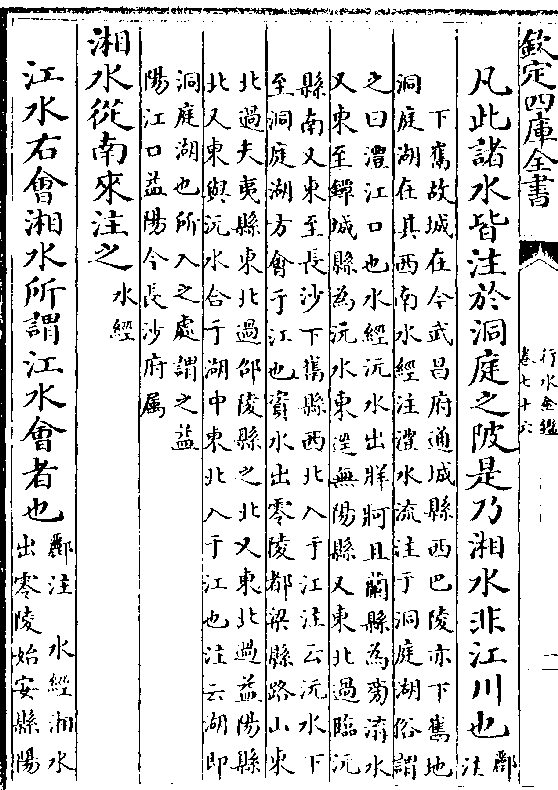 欽定四庫全書
行水金鑑
卷七十六
凡此諸水皆注於洞庭之陂是乃湘水非江川也
酈
注
下雋故城在今武昌府通城縣西巴陵亦下雋地
洞庭湖在其西南水經注澧水流注于洞庭湖俗謂
之曰澧江口也水經沅水出牂牁且蘭縣為旁溝水
又東至鐔城縣為沅水東逕無陽縣又東北過臨沅
縣南又東至長沙下雋縣西北入于江注云沅水下
至洞庭湖方會于江也資水出零陵都梁縣路山東
北過夫夷縣東北過邵陵縣之北又東北過益陽縣
北又東與沅水合于湖中東北入于江也注云湖即
洞庭湖也所入之處謂之益
陽江口益陽今長沙府属
湘水從南來注之
水經
江水右會湘水所謂江水會者也
酈注 水經湘水
出零陵始安縣陽